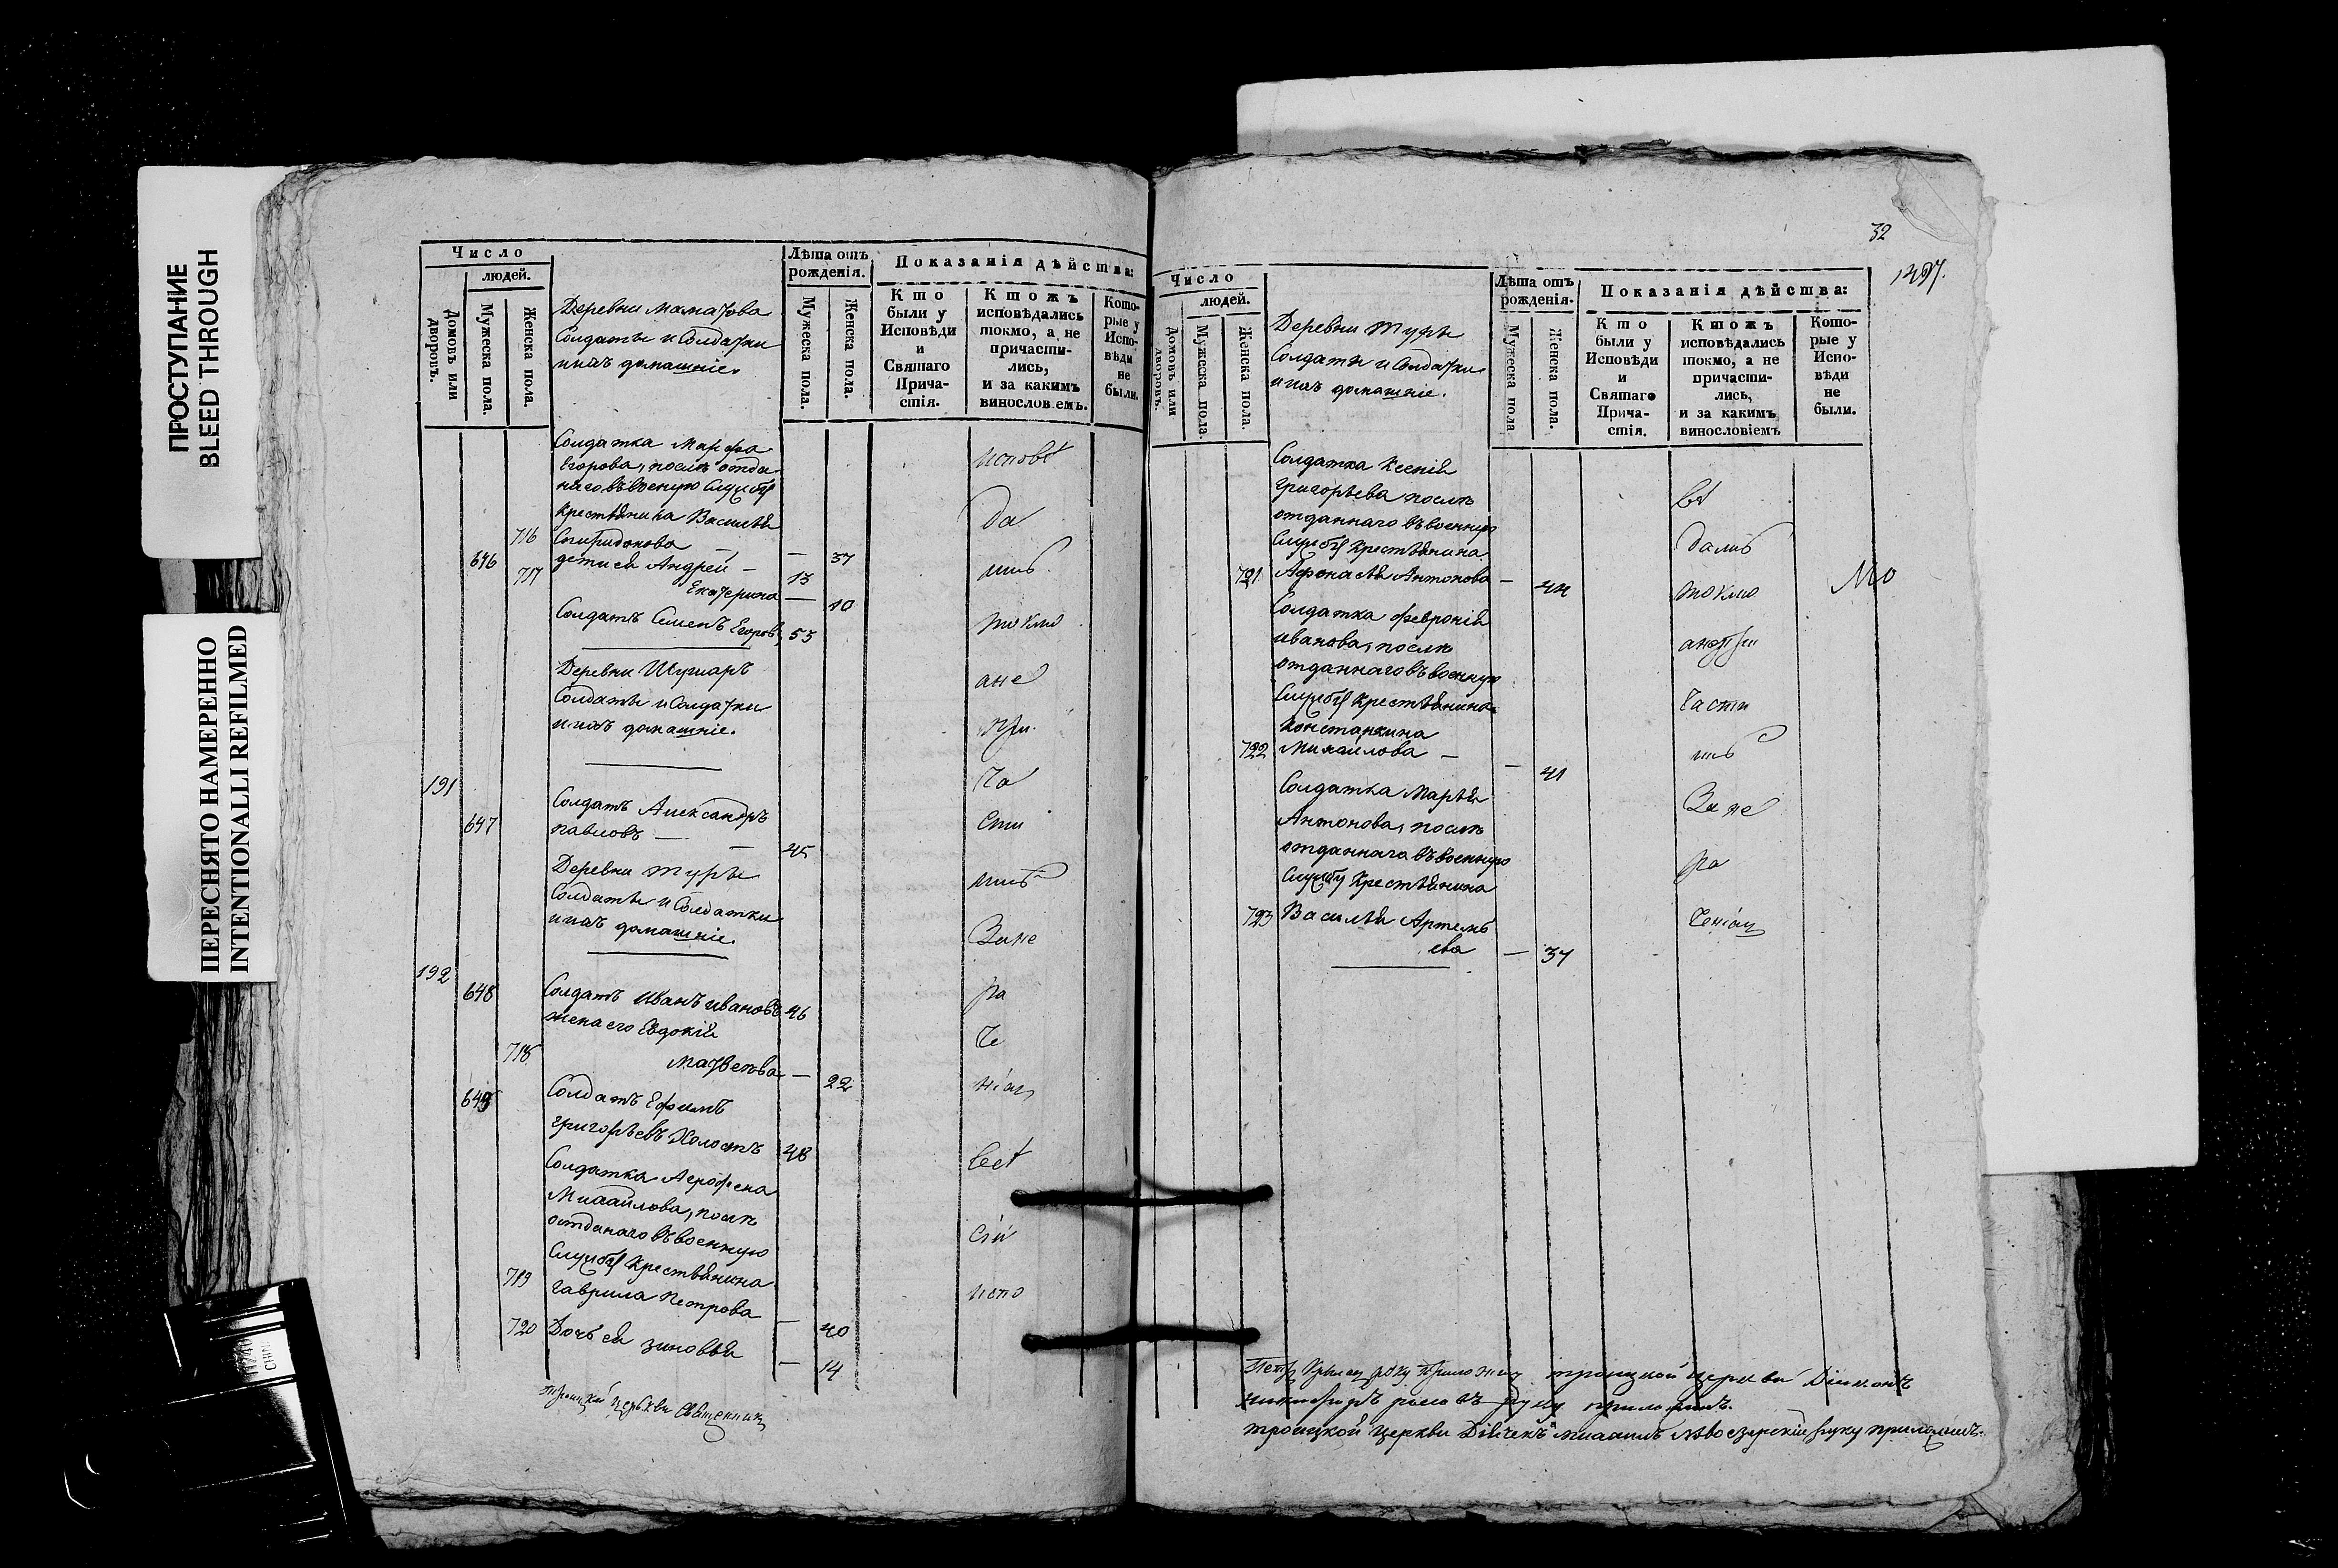 ПРОСТУПАНИЕ
BLEED THROUGH
ПЕРЕСНЯТО НАМЕРЕННО
INTENTIONALLI REFILMED
Число
людей.
Домовъ или дворовъ.
Мужеска пола.
Женска пола.
Деревни Маматова
Солдаты и Солдатки
и ихъ домашніе.
Лѣта отъ рожденія.
Мужеска пола.
Женска пола.
Показанія дѣйства:
Кто были у Исповѣди и Святаго Причастія.
Ктожъ исповѣдались токмо, а не причастились, и за какимъ винословіемъ.
Которые у Исповѣди не были.
Солдатка Марфа
Егорова, послѣ отда
наго въ военную службу
крестьянина Василья
716 Спиридонова — — 37
646 дети ея Андрей — 13
717 Екатерина — 10
Солдатъ Семенъ Егоровъ 55
Деревни Шушаръ
Солдаты и Солдатки
и ихъ домашніе.
191
647 Солдатъ Александръ
Павловъ — — 45
Деревни Туры
Солдаты и Солдатки
и ихъ домашніе.
192
648 Солдатъ Иванъ Ивановъ 46
жена его Евдокія
718 Матвеева — 22
649 Солдатъ Ефимъ
Григорьевъ Холостъ 48
Солдатка Агрофена
Михайлова, послѣ
отданаго въ военную
службу крестьянина
719 Гаврила Петрова — 40
720 Дочь ея Зиновья — 14
исповѣ
да
лись
токмо
а не
при
ча
сти
лись
За не
ра
че
ніем
испо
Троицкой церкви Священникъ
32
1397.
Число
людей.
Домовъ или дворовъ.
Мужеска пола.
Женска пола.
Деревни Туры
Солдаты и Солдатки
и ихъ домашніе.
Лѣта отъ рожденія.
Мужеска пола
Женска пола.
Показанія дѣйства:
Кто были у Исповѣди и Святаго Причастія.
Ктожъ исповѣдались токмо, а не причастились, и за какимъ винословіемъ
Которые у Исповѣди не были.
Солдатка Ксенія
Григорьева послѣ
отданнаго въ военную
службу крестьянина
721 Афонасья Антонова — 44
Солдатка Февронія
Иванова, послѣ
отданнаго въ военную
службу крестьянина
Констанкина
722 Михайлова — — 41
Солдатка Марья
Антонова, послѣ
отданнаго въ военную
службу крестьянина
723 Василья Артемь
ева — 37
вѣ
дались
токмо
а не при
части
лись
За не
ра
ченіем
Петръ руку приложилъ троицкой церкви Діяконъ
руку приложилъ.
троицкой церкви Діячекъ Михаилъ руку приложилъ.